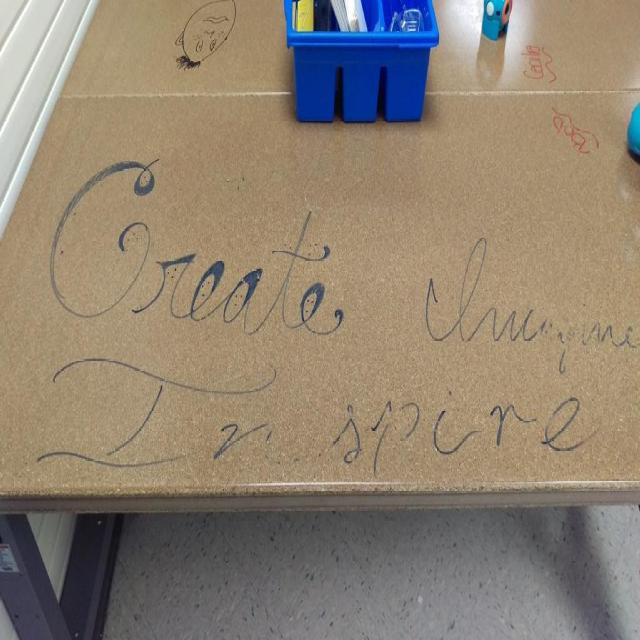 Create Imagine
Inspire